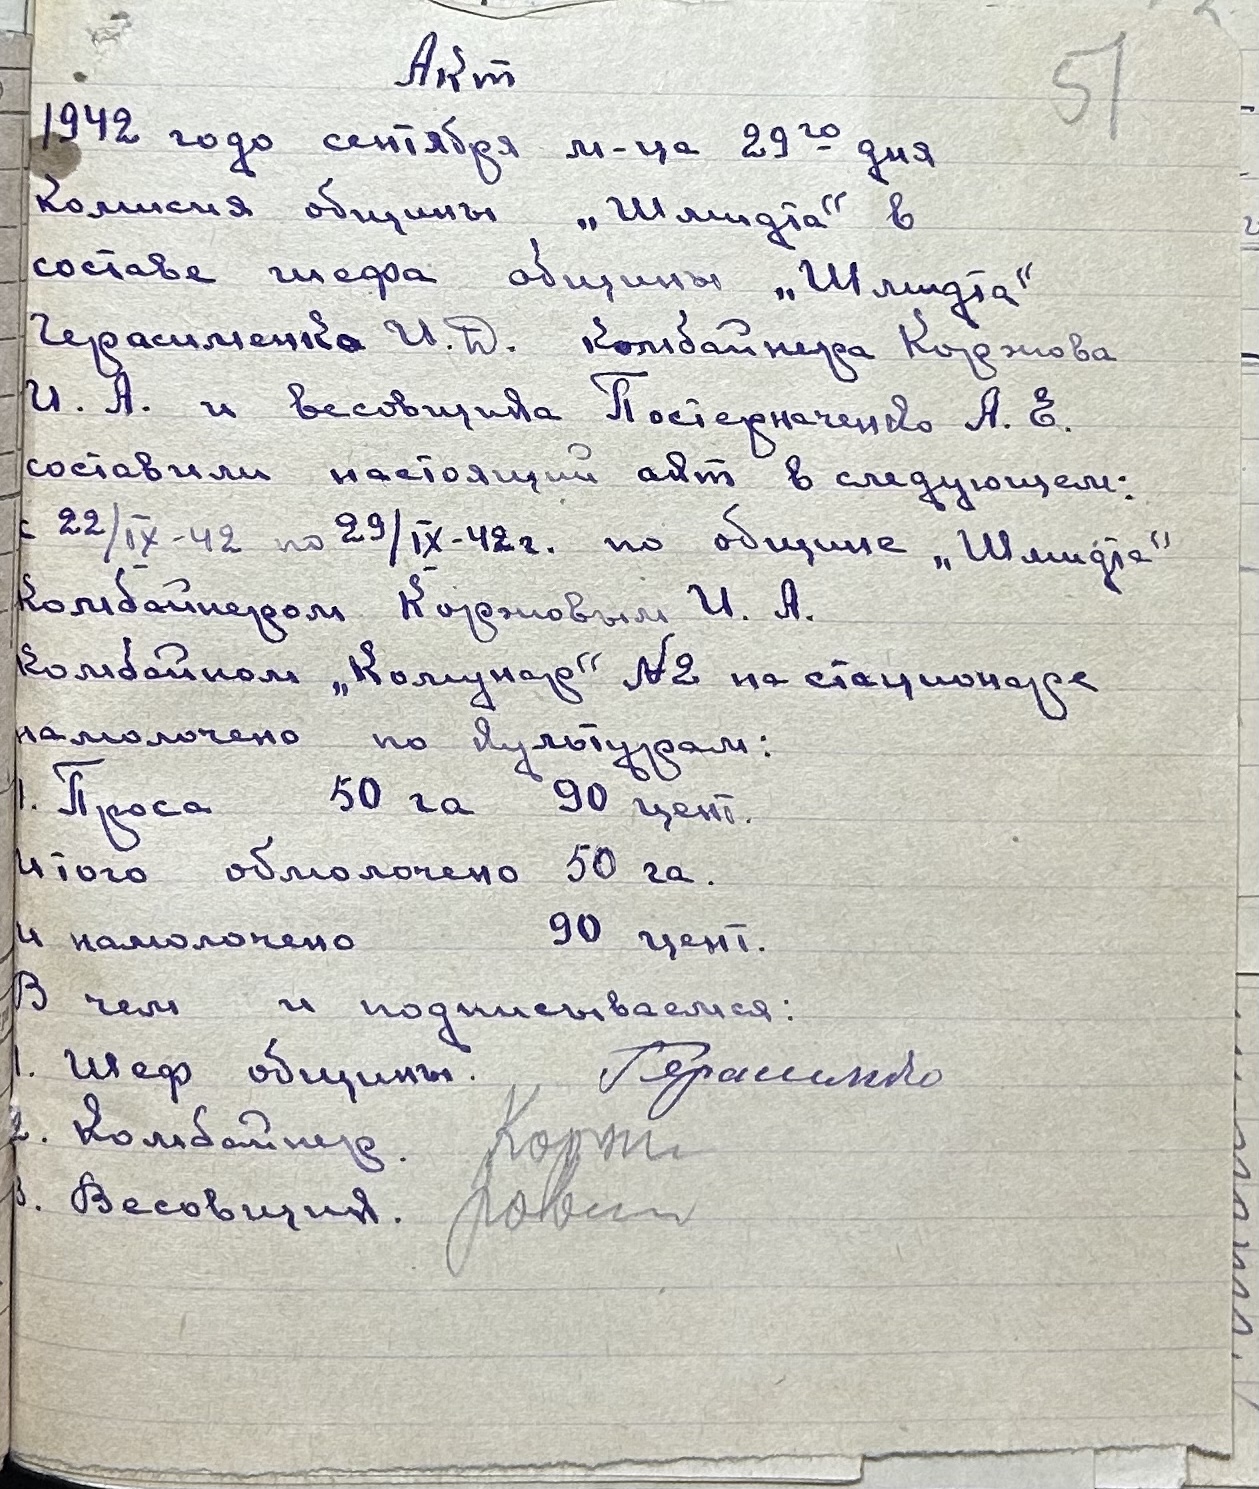 51
Акт
1942 годо сентября м-ца 29го дня
Комисия общины „Шмидта“ в
составе шефа общины „Шмидта“
Герасименко И.Д. комбайнера Коржова
И. А. и весовщика Постерначенко А. Е.
составили настоящий акт в следующем:
с 22/IX-42 по 29/IX-42г. по общине „Шмидта“
Комбайнером Коржовым И. А.
Комбайном „Комунар“ №2 на стационаре
намолочено по культурам:
1. Проса 50 га 90 цент.
Итого обмолочено 50 га.
и намолочено 90 цент.
В чем и подписываемся:
1. Шеф общины. Герасименко
2. Комбайнер. Корж
3. Весовщик.